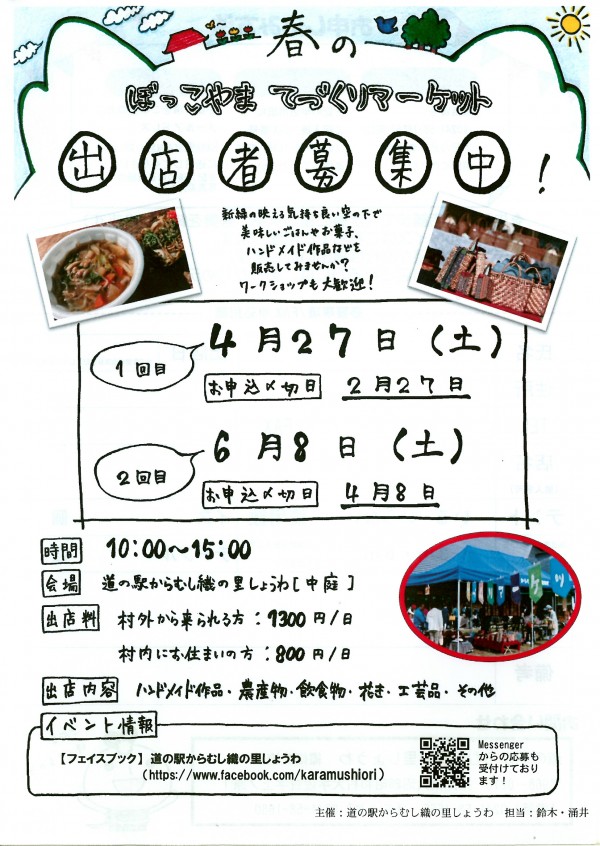 春の
ぼっこやま てづくりマーケット
出店者募集中!
新緑の映える気持ち良い空の下で
美味しいごはんやお菓子、
ハンドメイド作品などを
販売してみませんか?
ワークショップも大歓迎!
1回目
4月27日(土)
お申込〆切日 2月27日
2回目
6月8日(土)
お申込〆切日 4月8日
時間 10:00〜15:00
会場 道の駅からむし織の里しょうわ[中庭]
出店料 村外から来られる方:1300円/日
村内にお住まいの方:800円/日
出店内容 ハンドメイド作品・農産物・飲食物・花き・工芸品・その他
イベント情報
【フェイスブック】道の駅からむし織の里しょうわ
(https://www.facebook.com/karamushiori)
Messenger
からの応募も
受付けており
ます!
主催:道の駅からむし織の里しょうわ 担当:鈴木・涌井